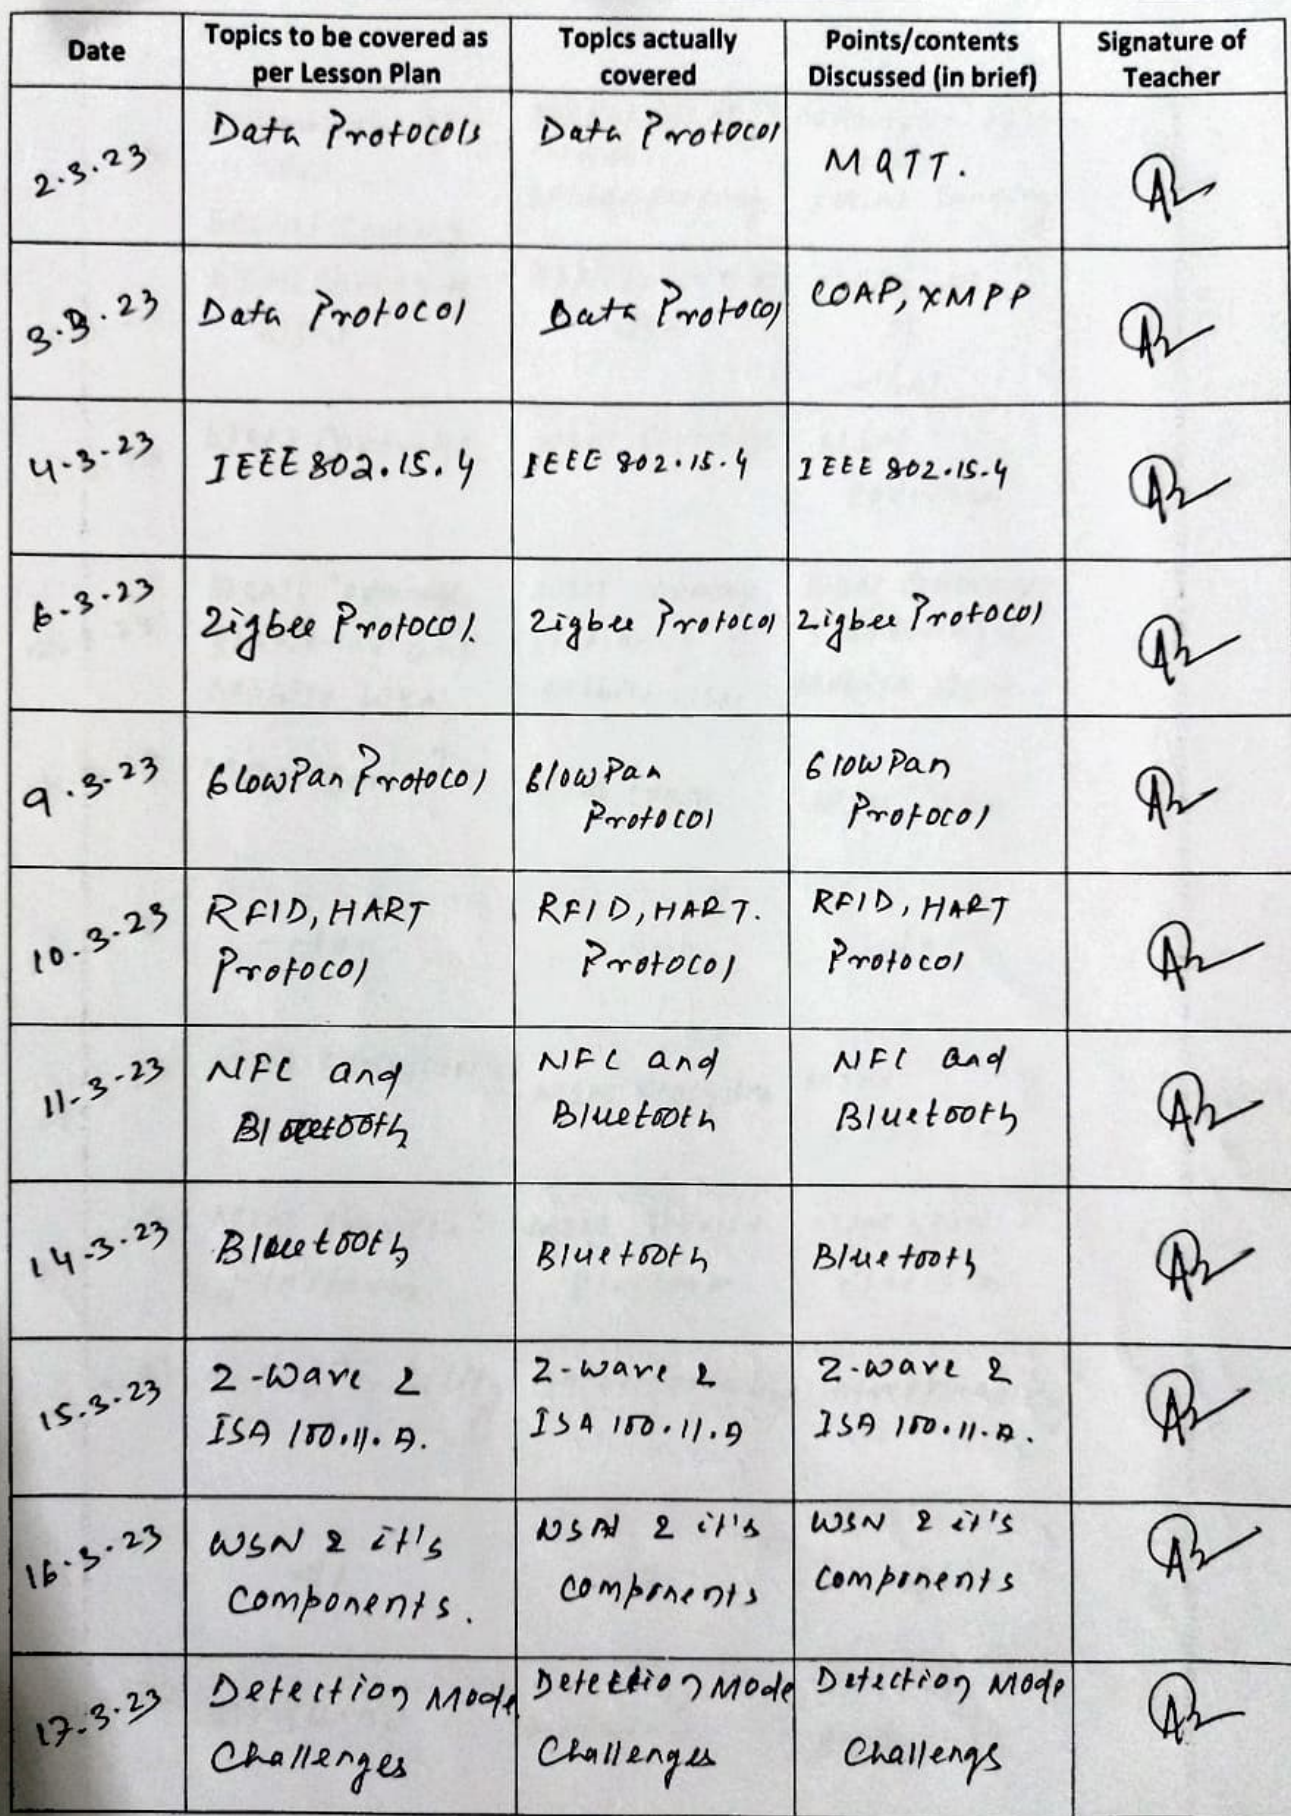 Date
Topics to be covered as
per Lesson Plan
Topics actually
covered
Points/contents
Discussed (in brief)
Signature of
Teacher
2.3.23
Data Protocols
Data Protocol
MQTT.
3.3.23
Data Protocol
Data Protocol
COAP, XMPP
4.3.23
IEEE 802.15.4
IEEE 802.15.4
IEEE 802.15.4
6.3.23
Zigbee Protocol.
Zigbee Protocol
Zigbee Protocol
9.3.23
6LowPan Protocol
6lowPan
Protocol
6lowPan
Protocol
10.3.23
RFID, HART
Protocol
RFID, HART.
Protocol
RFID, HART
Protocol
11-3-23
NFC and
Bluetooth
NFC and
Bluetooth
NFC and
Bluetooth
14.3.23
Bluetooth
Bluetooth
Bluetooth
15.3.23
Z-Wave &
ISA 100.11.A.
Z-wave &
ISA 100.11.A
Z-wave &
ISA 100.11.A.
16.3.23
WSN & it's
Components.
WSN & it's
Components
WSN & it's
Components
17.3.23
Detection Mode
Challenges
Detection Mode
Challenges
Detection Mode
Challengs